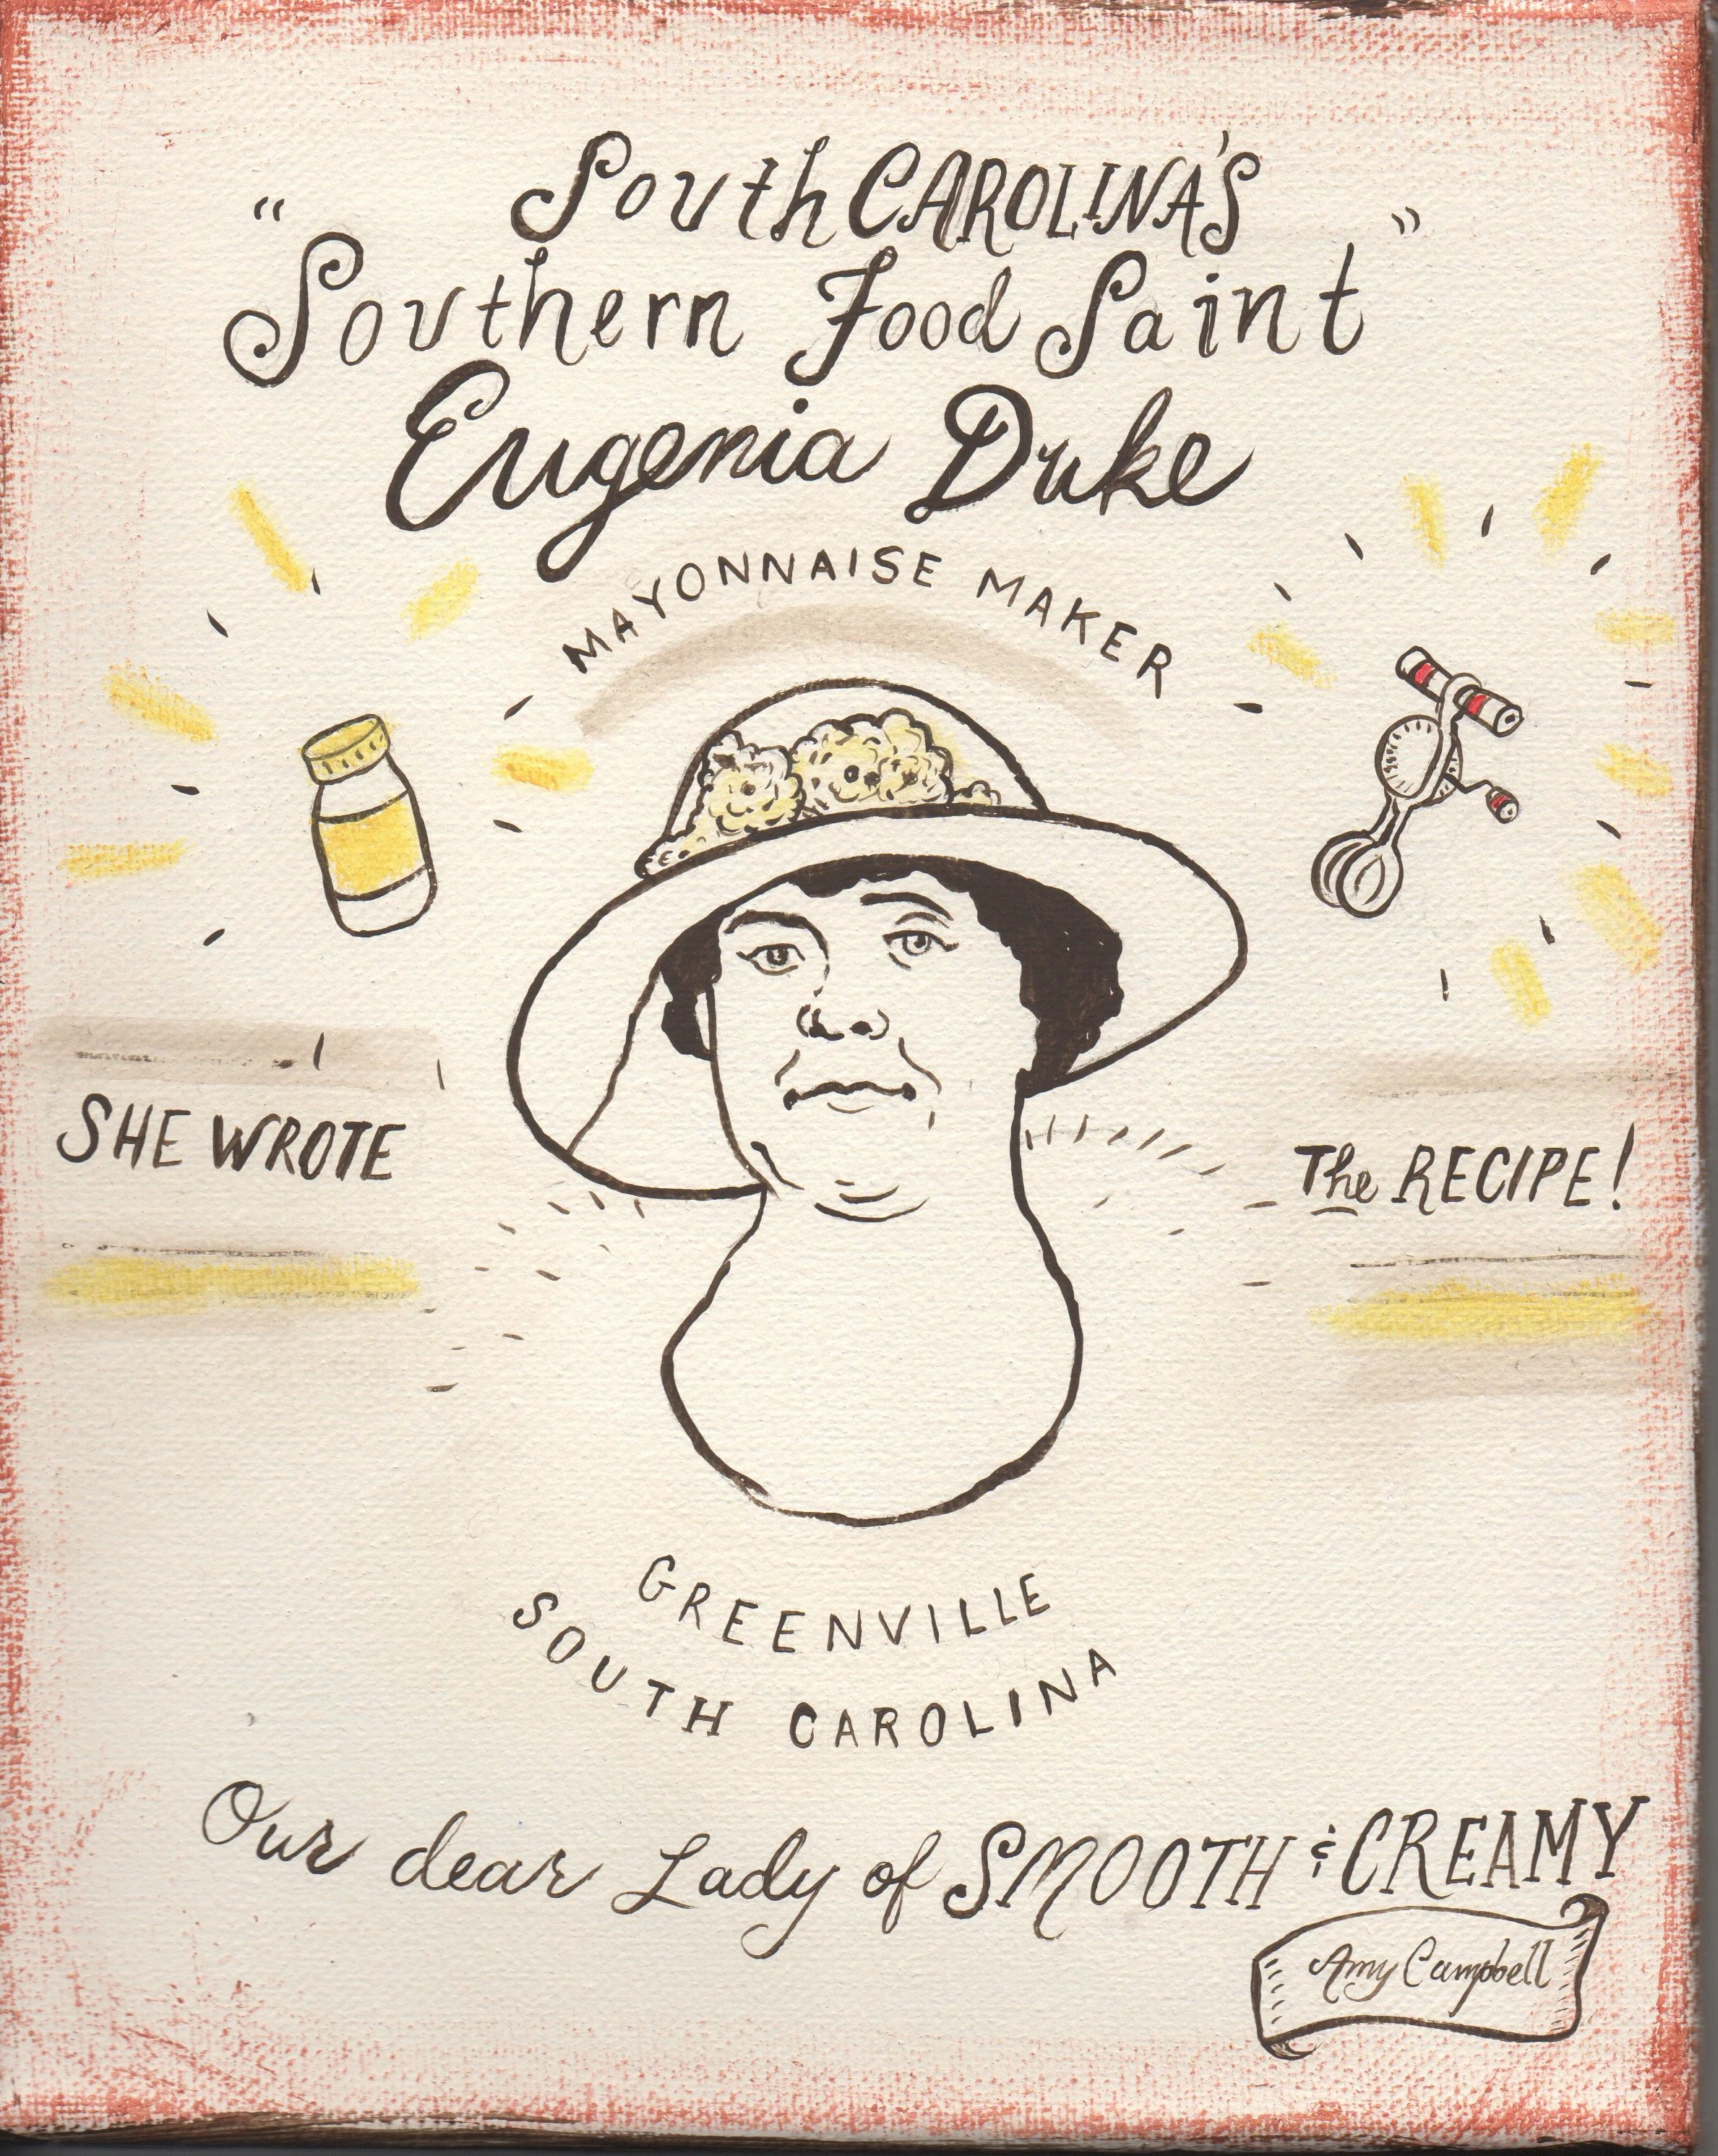 South CAROLINA'S
"Southern Food Saint"
Eugenia Duke
MAYONNAISE MAKER
SHE WROTE
The RECIPE!
GREENVILLE
SOUTH CAROLINA
Our dear Lady of SMOOTH & CREAMY
Amy Campbell